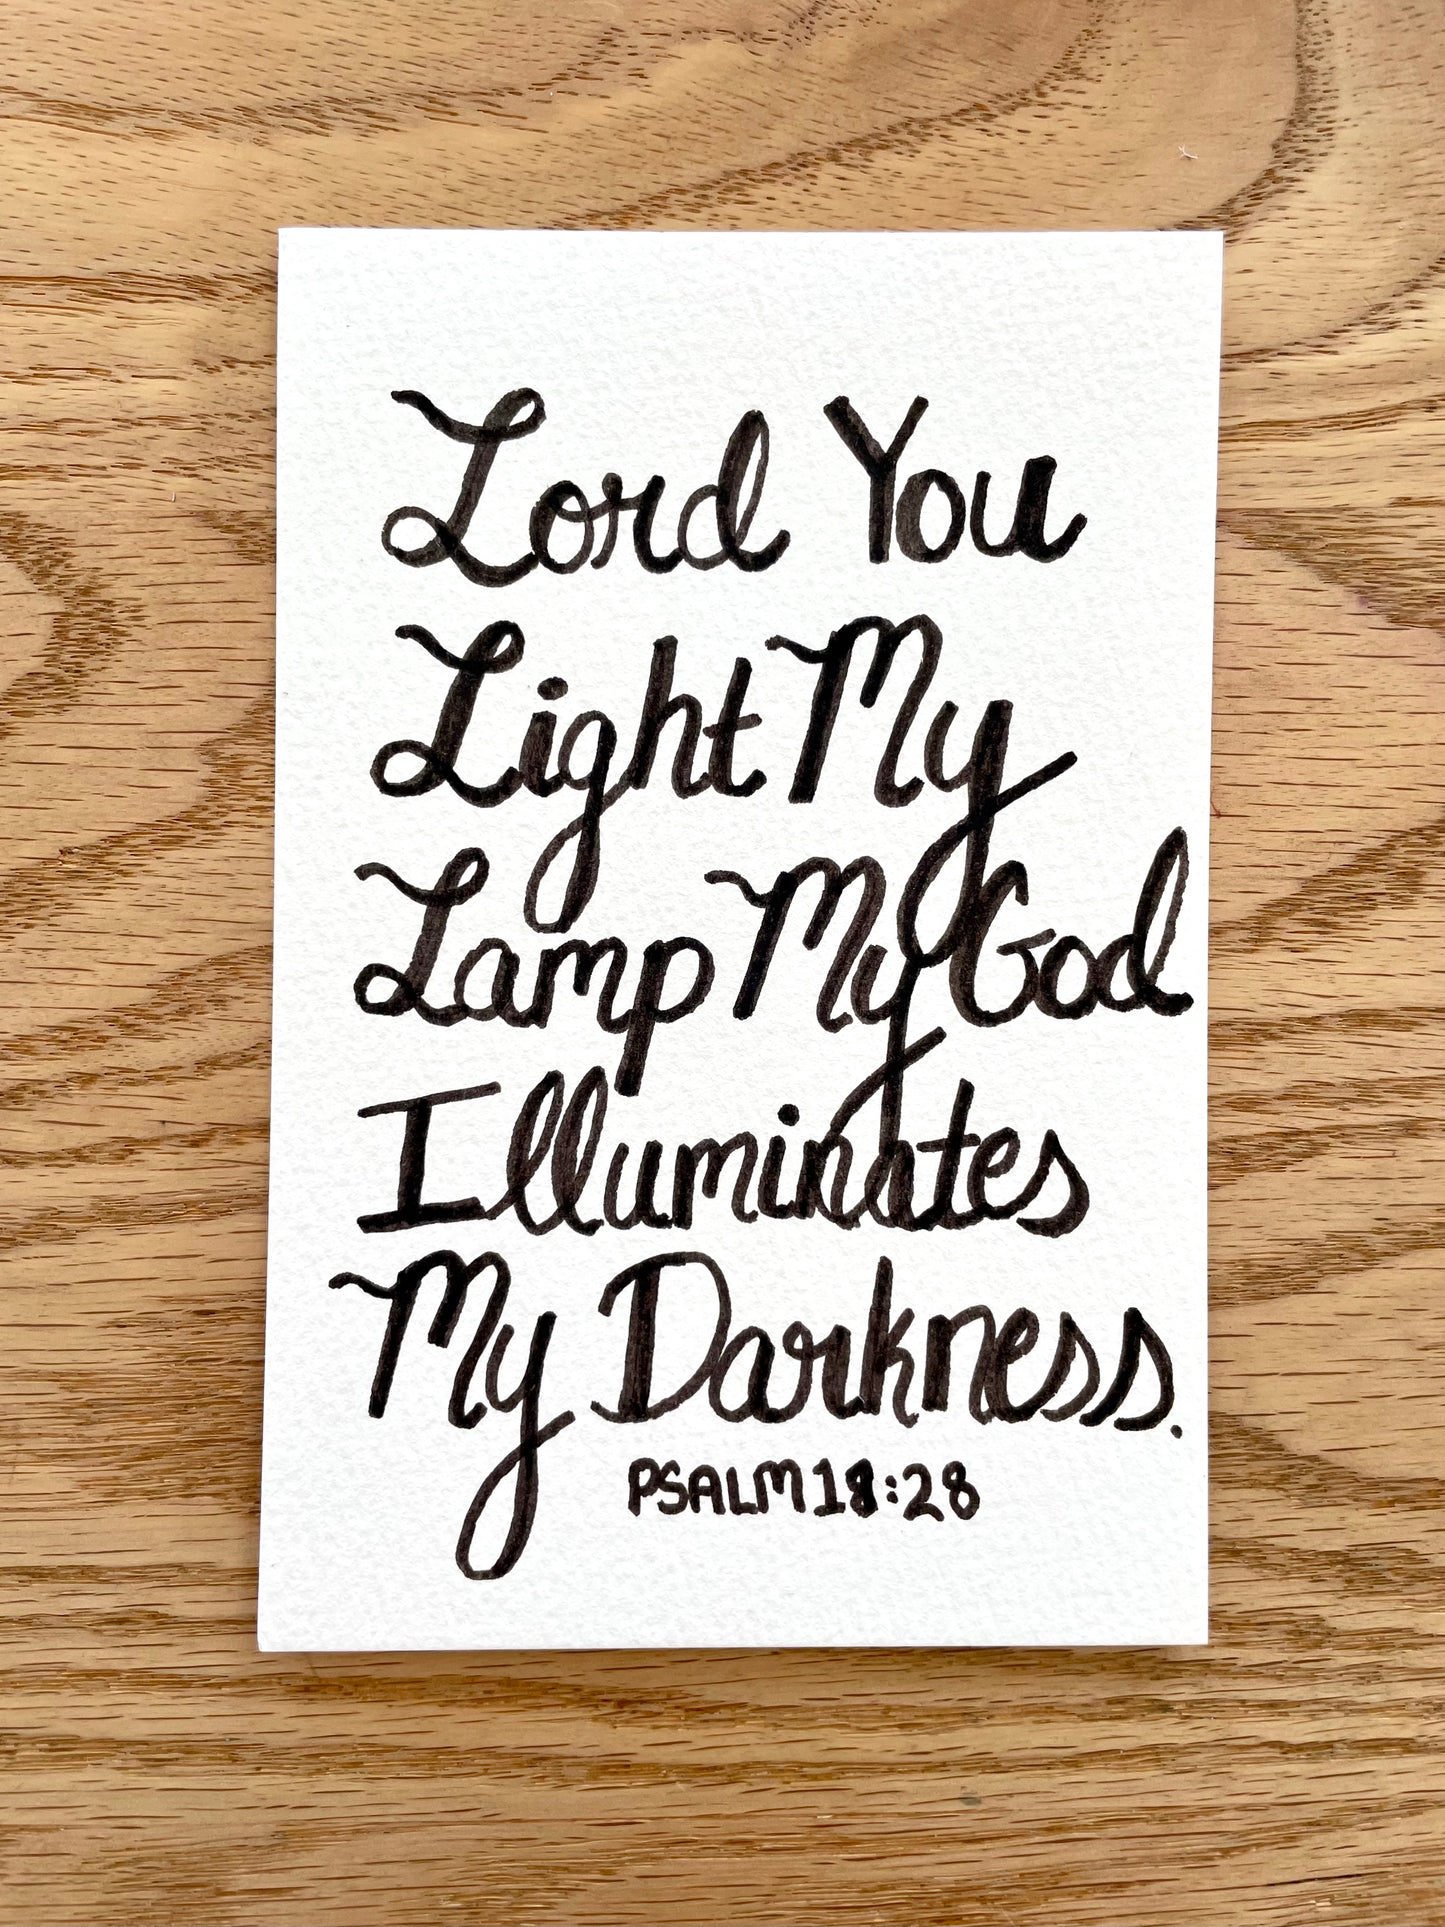 Lord You
Light My
Lamp My God
Illuminates
My Darkness.
PSALM 18:28